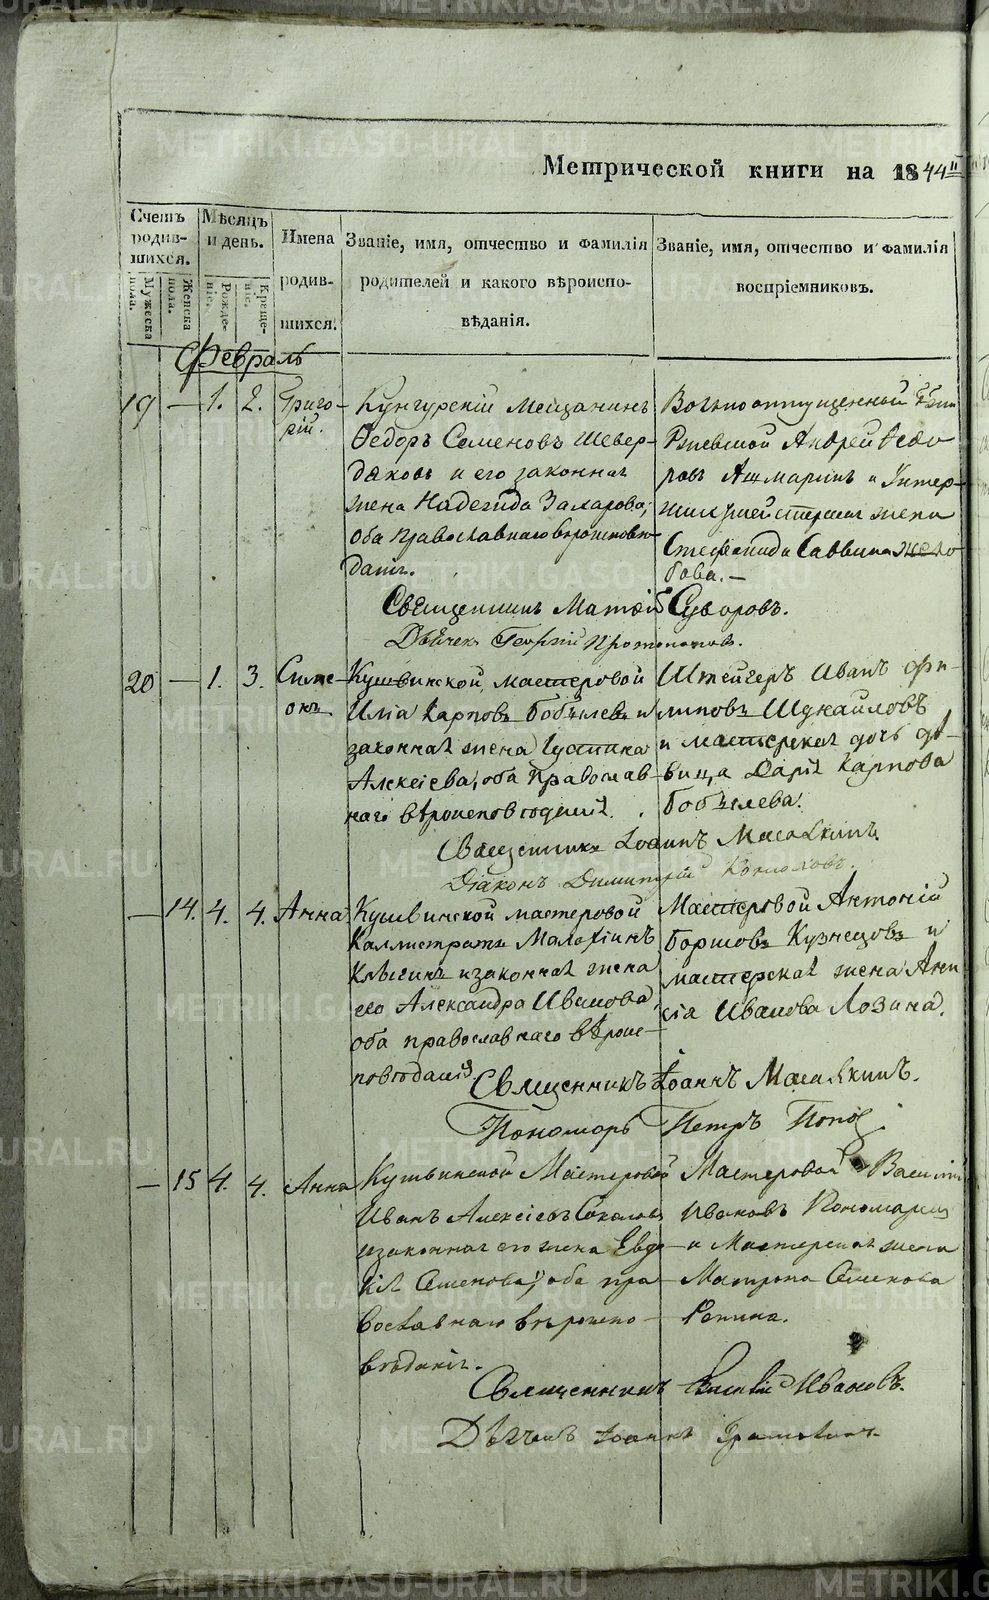 METRIKI.GASO-URAL.RU
Метрической книги на 1844
Счетъ родив-шихся.
Мѣсяцъ и день.
Имена родив-шихся.
Званіе, имя, отчество и фамилія
родителей и какого вѣроиспо-
вѣданія.
Званіе, имя, отчество и фамилія
воспріемниковъ.
Мужеска пола.
Женска пола.
Рожде-ніе.
Креще-ніе.
Февраль
19 — 1. 2. Григо-рій.
Кунгурскій мещанинъ
Федоръ Семеновъ Шевер-
даковъ и его законная
жена Надежда Захарова,
оба православнаго вѣроисповѣ-
данія.
Вольноотпущенной
Андрей Федо
ровъ Ашмаринъ и Унтер-
шихтмейстерская жена
Стефанида Саввина
бова.—
Священникъ Матѳій Суворовъ.
Дьячекъ Георгій Протопоповъ.
20 — 1. 3. Симе-онъ.
Кушвинской мастеровой
Илія Карповъ Бобылевъ и
законная жена Іустина
Алексіева, оба православ-
наго вѣроисповѣданія.
Штейгеръ Иванъ Фи-
липовъ Шукайловъ
и мастерская дочь дѣ-
вица Дарія Карпова
Бобылева.
Священникъ Іоаннъ
Діаконъ Димитрій Коноховъ.
— 14. 4. 4. Анна
Кушвинской мастеровой
Каллистратъ Малахіинъ
и законная жена
его Александра Иванова,
оба православнаго вѣроис-
повѣданія.
Мастеровой Антоній
Кузнецовъ и
мастерская жена Ани-
сія Иванова Лозина.
Священникъ Іоаннъ
Пономарь Петръ Поповъ.
— 15 4. 4. Анна
Кушвинской Мастеровой
Иванъ Алексіевъ Соколовъ
и законная его жена Евдо-
кія Семенова, оба пра-
вославнаго вѣроиспо-
вѣданія.
Мастеровой Василій
Ивановъ Пономаревъ
и Мастерская жена
Матрона Семенова
Репина.
Священникъ Василій Ивановъ.
Дьячекъ Іоаннъ